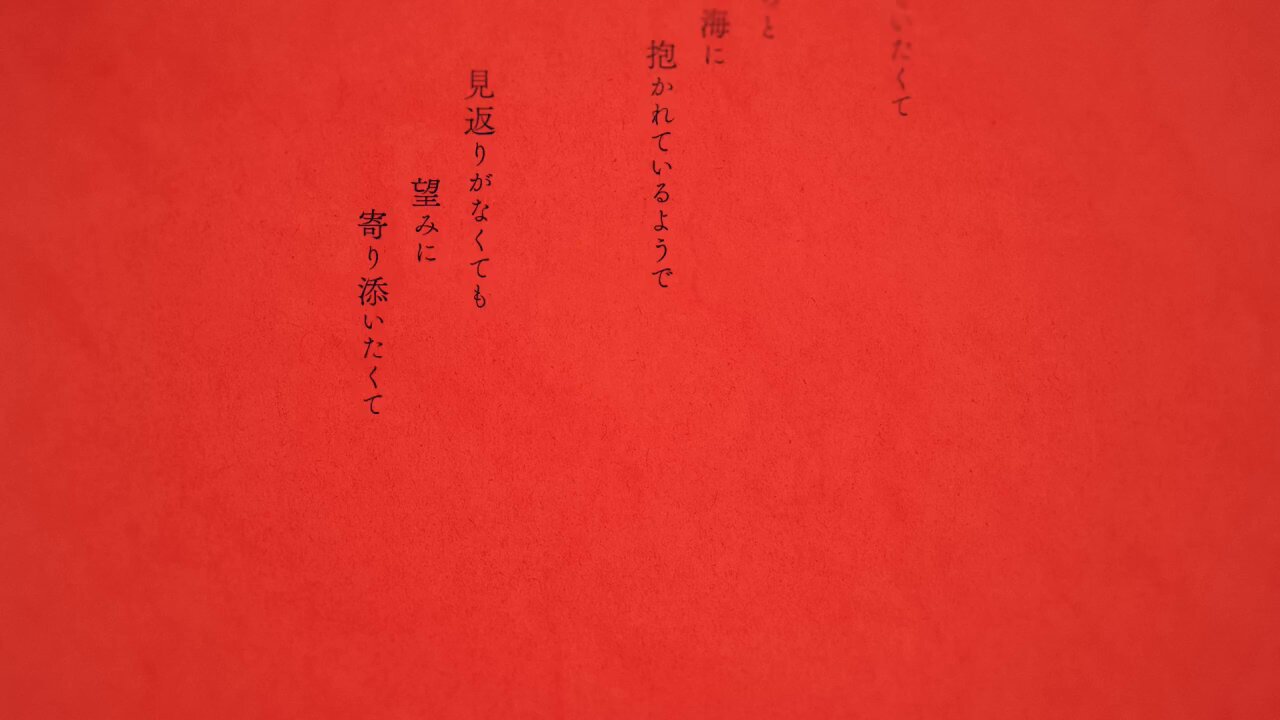 いたくて
と
海に
抱かれているようで
見返りがなくても
望みに
寄り添いたくて